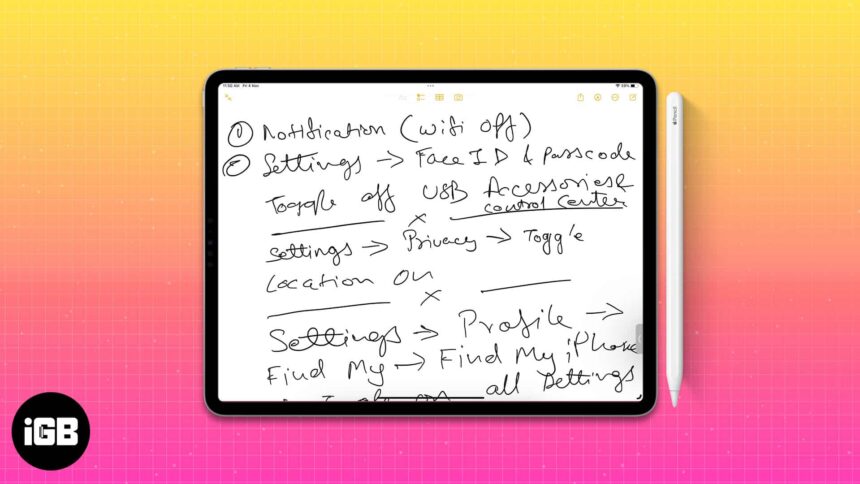 11:50 AM Fri 4 Nov
59%
① Notification (wifi off)
② Settings → Face ID & Passcode
Toggle off USB Accessories &
control center
x
Settings → Privacy → Toggle
Location On
x
Settings → Profile →
Find My → Find My iPhone
all Settings
Pencil
iGB